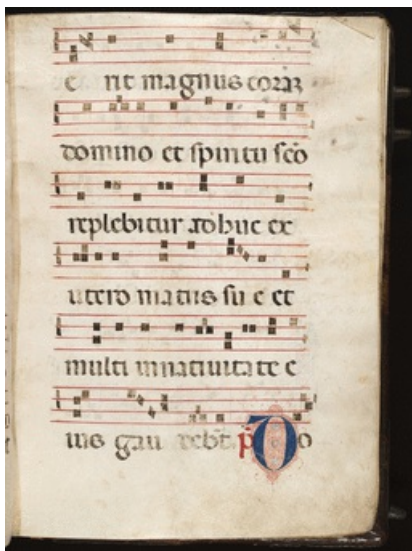 e rit magnus coram
domino et spiritu sco
replebitur adhuc ex
utero matris su e et
multi innativitate e
ius gau debt. p